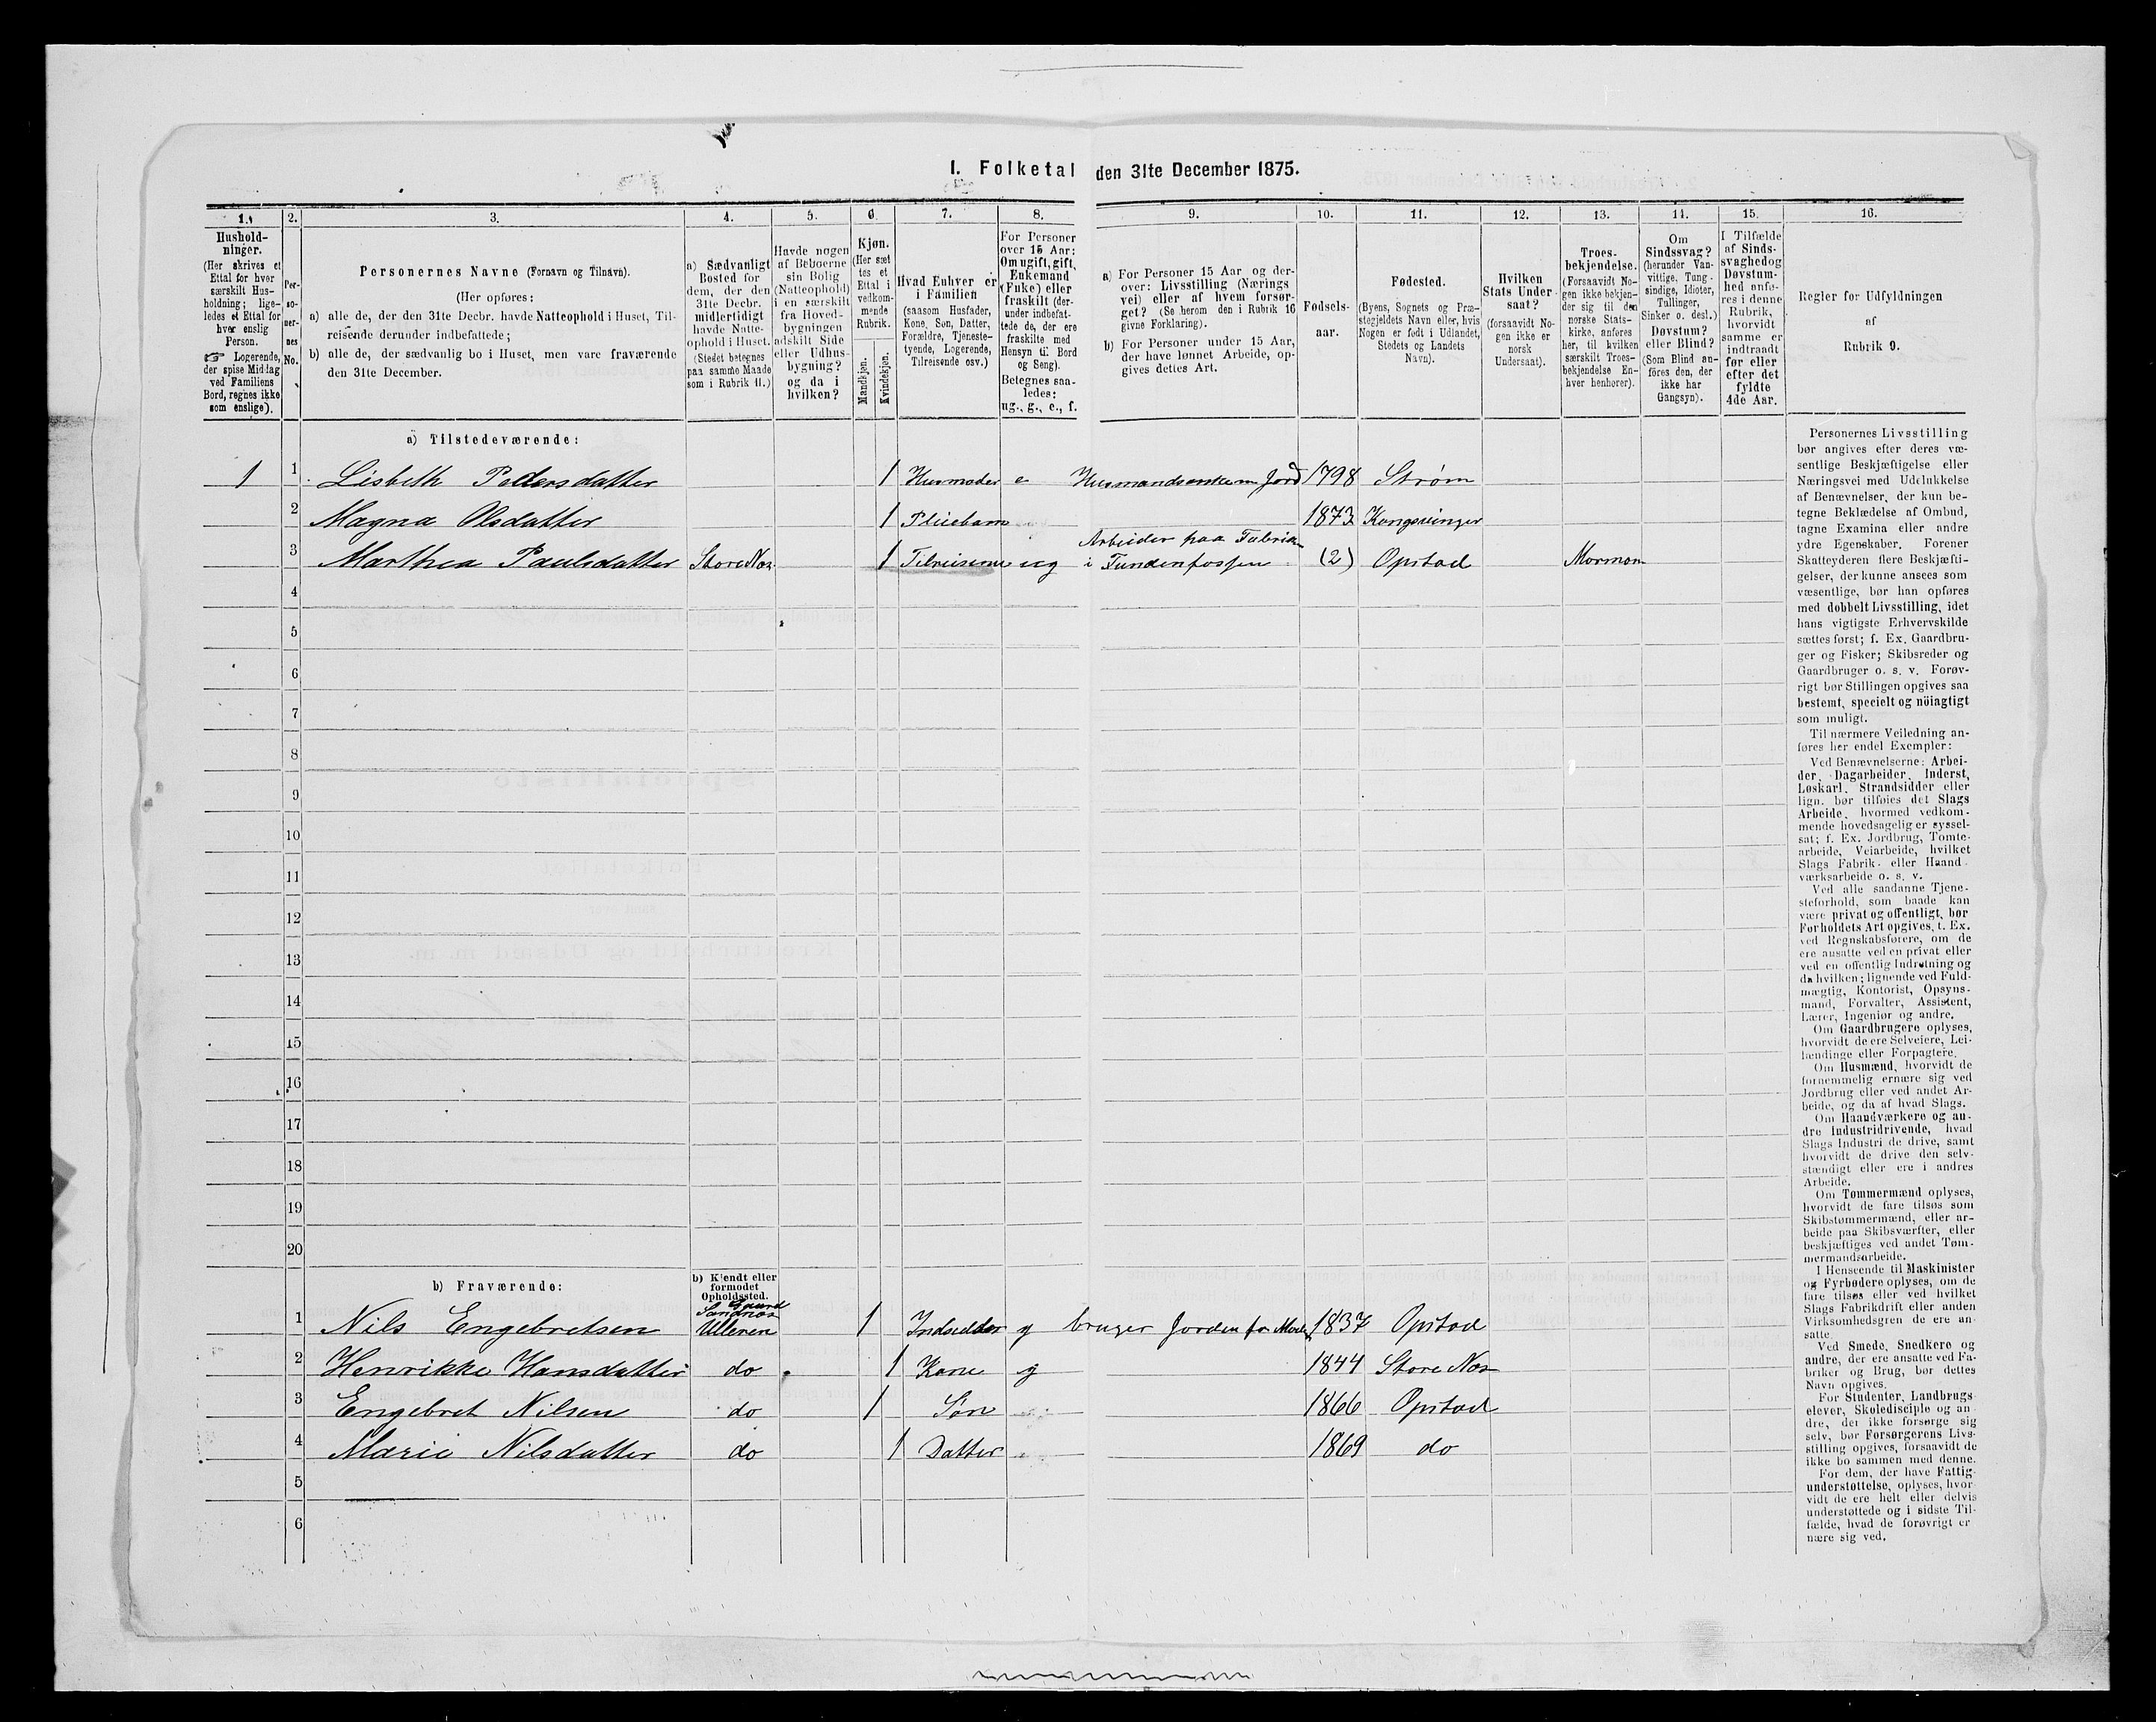 I. Folketal den 31te December 1875.
1. 2. 3. 4. 5. 6. 7. 8. 9. 10. 11. 12. 13. 14. 15. 16.
Hushold-
ninger.
(Her skrives et
Ettal for hver
særskilt Hus-
holdning; lige-
ledes et Ettal for
hver enslig
Person.
☞ Logerende,
der spise Middag
ved Familiens
Bord, regnes ikke
som enslige).
Per-
so-
ner-
nes
No.
Personernes Navne (Fornavn og Tilnavn).
(Her opføres:
a) alle de, der den 31te Decbr. havde Natteophold i Huset, Til-
reisende derunder indbefattede;
b) alle de, der sædvanlig bo i Huset, men vare fraværende
den 31te December.
a) Sædvanligt
Bosted for
dem, der den
31te Decbr.
midlertidigt
havde Natte-
ophold i Huset.
(Stedet betegnes
paa samme Maade
som i Rubrik 11.)
Havde nogen
af Beboerne
sin Bolig
(Natteophold)
i en særskilt
fra Hoved-
bygningen
adskilt Side
eller Udhus-
bygning?
og da i
hvilken?
Kjøn.
(Her sæt
tes et
Ettal i
vedkom-
mende
Rubrik.
Mandkjøn.
Kvindekjøn.
Hvad Enhver er
i Familien
(saasom Husfader,
Kone, Søn, Datter,
Forældre, Tjeneste-
tyende, Logerende,
Tilreisende osv.)
For Personer
over 15 Aar:
Om ugift, gift,
Enkemand
(Enke) eller
fraskilt (der-
under indbefat-
tede de, der ere
fraskilte med
Hensyn til Bord
og Seng).
Betegnes saa-
ledes:
ug., g., e., f.
a) For Personer 15 Aar og der-
over: Livsstilling (Nærings
vei) eller af hvem forsør-
get? (Se herom den i Rubrik 16
givne Forklaring).
b) For Personer under 15 Aar,
der have lønnet Arbeide, op-
gives dettes Art.
Fødsels-
aar.
Fødested.
(Byens, Sognets og Præ-
stegjeldets Navn eller, hvis
Nogen er født i Udlandet,
Stedets og Landets
Navn).
Hvilken
Stats Under-
saat?
(forsaavidt No-
gen ikke er
norsk
Undersaat).
Troes-
bekjendelse.
(Forsaavidt No-
gen ikke bekjen-
der sig til den
norske Stats-
kirke, anføres
her, til hvilken
særskilt Troes-
bekjendelse En-
hver henhører).
Om
Sindssvag?
(herunder Van-
vittige, Tung-
sindige, Idioter,
Tullinger,
Sinker o. desl.)
Døvstum?
eller Blind?
(Som Blind an-
føres den, der
ikke har
Gangsyn).
I Tilfælde
af Sinds-
svaghed og
Døvstum-
hed anfø-
res i denne
Rubrik,
hvorvidt
samme er
indtraadt
før eller
efter det
fyldte
4de Aar.
Regler for Udfyldningen
af
Rubrik 9.
a) Tilstedeværende:
1 1 Lisbeth Pedersdatter 1 Husmoder e Husmandsenke m Jord 1798 Strøm
2 Magna Olsdatter 1 Pleiebarn 1873 Kongsvinger
3 Marthea Paulsdatter Store Næs 1 Tilreisene ug Arbeider paa Fabrik
i Fundenfossen (2) Opstad Mormon
4
5
6
7
8
9
10
11
12
13
14
15
16
17
18
19
20
b) Fraværende:
b) Kjendt eller
formodet
Opholdssted.
1 Nils Engebretsen Gaard
Sandnæs
Ulleren 1 Indsidder g bruger Jorden for Moder 1837 Opstad
2 Henrikke Hansdatter do 1 Kone g 1844 Store Næs
3 Engebret Nilsen do 1 Søn 1866 Opstad
4 Marie Nilsdatter do 1 Datter 1869 do
5
6
Personernes Livsstilling
bør angives efter deres væ-
sentlige Beskjæftigelse eller
Næringsvei med Udelukkelse
af Benævnelser, der kun be-
tegne Beklædelse af Ombud,
tagne Examina eller andre
ydre Egenskaber. Forener
Skatteyderen flere Beskjæfti-
gelser, der kunne ansees som
væsentlige, bør han opføres
med dobbelt Livsstilling, idet
hans vigtigste Erhvervskilde
sættes først; f. Ex. Gaardbru-
ger og Fisker; Skibsreder og
Gaardbruger o. s. v. Forøv-
rigt bør Stillingen opgives saa
bestemt, specielt og nöiagtigt
som muligt.
Til nærmere Veiledning an-
føres her endel Exempler:
Ved Benævnelserne: Arbei-
der, Dagarbeider, Inderst,
Løskarl, Strandsidder eller
lign. bør tilføies det Slags
Arbeide, hvormed vedkom-
mende hovedsagelig er syssel-
sat; f. Ex. Jordbrug, Tomte-
arbeide, Veiarbeide, hvilket
Slags Fabrik- eller Haand-
værksarbeide o. s. v.
Ved alle saadanne Tjene-
steforhold, som baade kan
være privat og offentligt, bør
Forholdets Art opgives, t. Ex.
ved Regnskabsførere, om de
ere ansatte ved en privat eller
ved en offentlig Indretning og
da hvilken; lignende ved Fuld-
mægtig, Kontorist, Opsyns-
mand, Forvalter, Assistent,
Lærer, Ingeniør og andre.
Om Gaardbrugere oplyses,
hvorvidt de ere Selveiere, Lei-
lændinge eller Forpagtere.
Om Husmænd, hvorvidt de
fornemmelig ernære sig ved
Jordbrug eller ved andet Ar-
beide, og da af hvad Slags.
Om Haandværkere og an-
dre Industridrivende, hvad
Slags Industri de drive, samt
hvorvidt de drive den selv-
stændigt eller ere i andres
Arbeide.
Om Tømmermænd oplyses,
hvorvidt de fare tilsøs som
Skibstømmermænd, eller ar-
beide paa Skibsværfter, eller
beskjæftiges ved andet Tøm-
mermandsarbeide.
I Henseende til Maskinister
og Fyrbødere oplyses, om de
fare tilsøs eller ved hvilket
Slags Fabrikdrift eller anden
Virksomhedsgren de ere an-
satte.
Ved Smede, Snedkere og
andre, der ere ansatte ved Fa-
briker og Brug, bør dettes
Navn opgives.
For Studenter, Landbrugs-
elever, Skoledisciple og an-
dre, der ikke forsørge sig
selv, bør Forsørgerens Livs-
stilling opgives, forsaavidt de
ikke bo sammen med denne.
For dem, der have Fattig-
understøttelse, oplyses, hvor-
vidt de ere helt eller delvis
understøttede og i sidste Til-
fælde, hvad de forøvrigt er
nære sig ved.